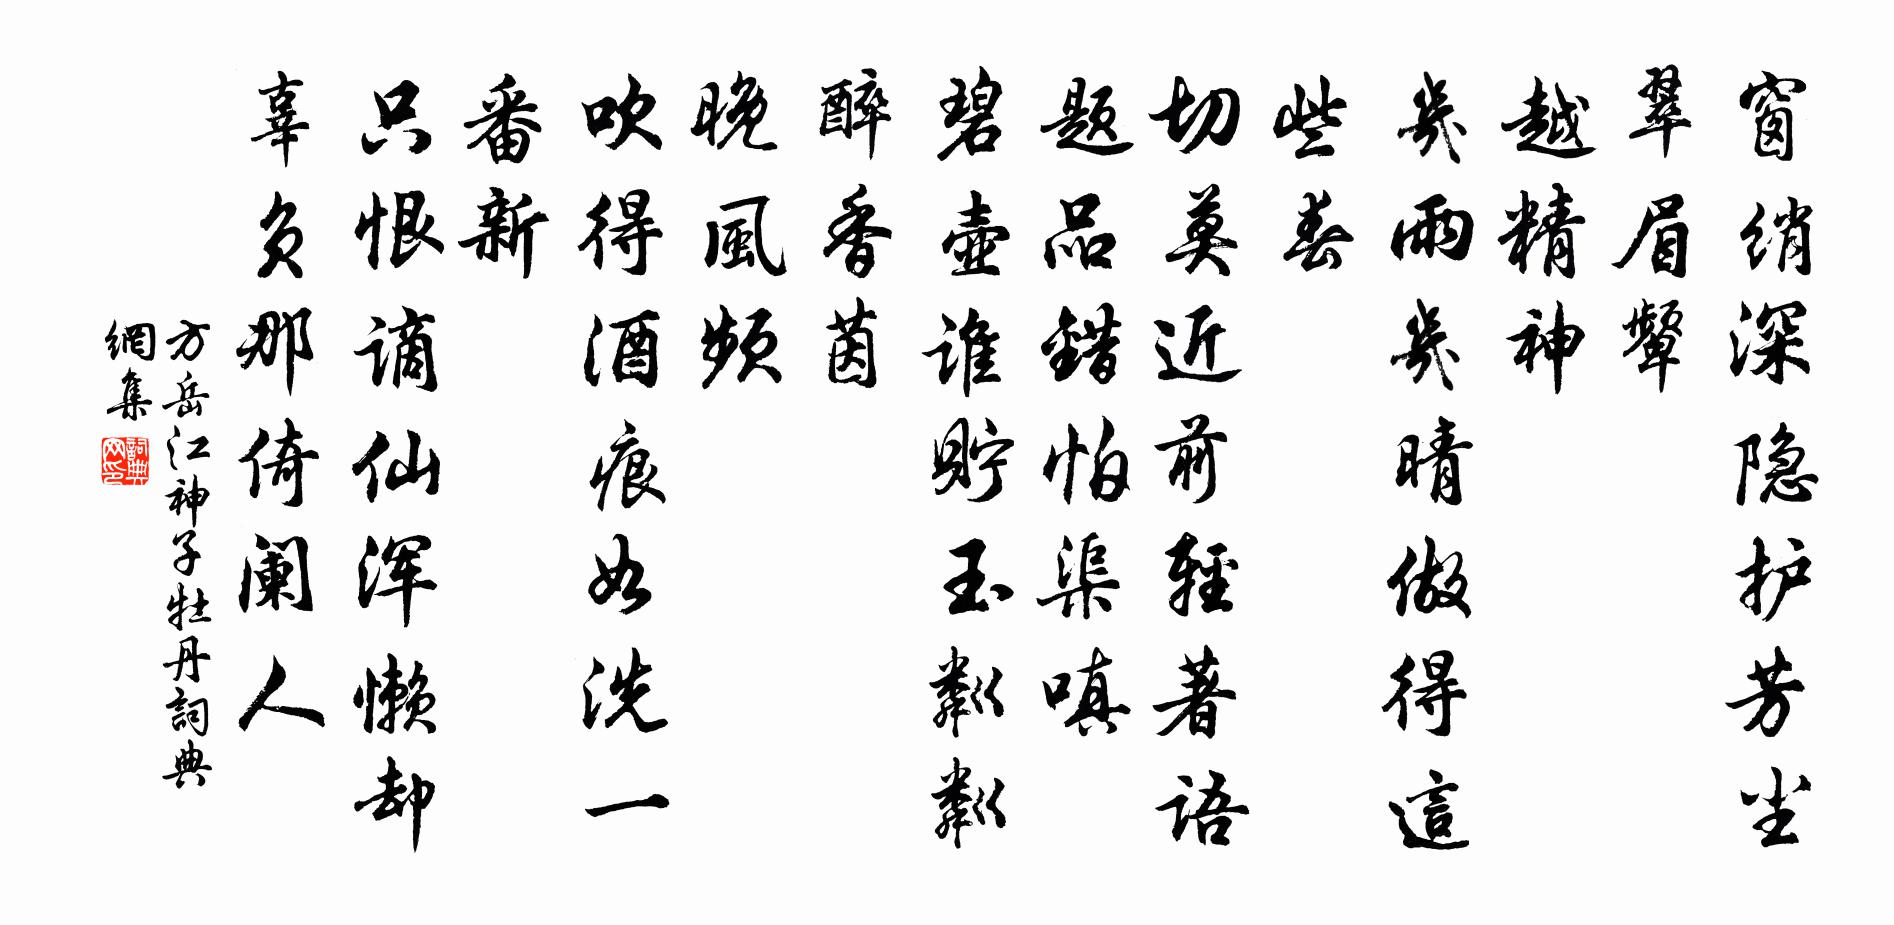 窗绡深隐护芳尘
翠眉颦
越精神
幾雨幾晴做得這
些春
切莫近前輕著語
题品錯怕渠嗔
碧壺谁貯玉粼粼
醉香茵
晚風频
吹得酒痕如洗一
番新
只恨谪仙浑懒却
辜负那倚阑人
方岳江神子牡丹詞典
網集
詞典
网印